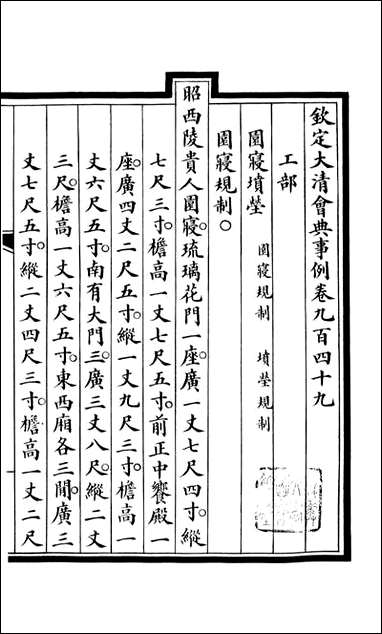 欽定大清會典事例卷九百四十九
工部
園寢墳塋 園寢規制 墳塋規制
園寢規制○
昭西陵貴人園寢。琉璃花門一座。廣一丈七尺四寸。縱
七尺三寸。檐高一丈七尺五寸。前正中饗殿一
座。廣四丈二尺五寸。縱一丈九尺三寸。檐高一
丈六尺五寸。南有大門三。廣三丈八尺。縱二丈
三尺。檐高一丈六尺五寸。東西廂各三閒。廣三
丈七尺五寸。縱二丈四尺三寸。檐高一丈二尺